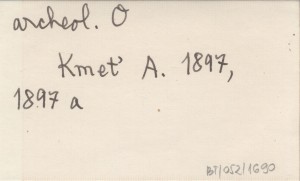 archeol. O
Kmeť A. 1897,
1897 a
BT/052/1690